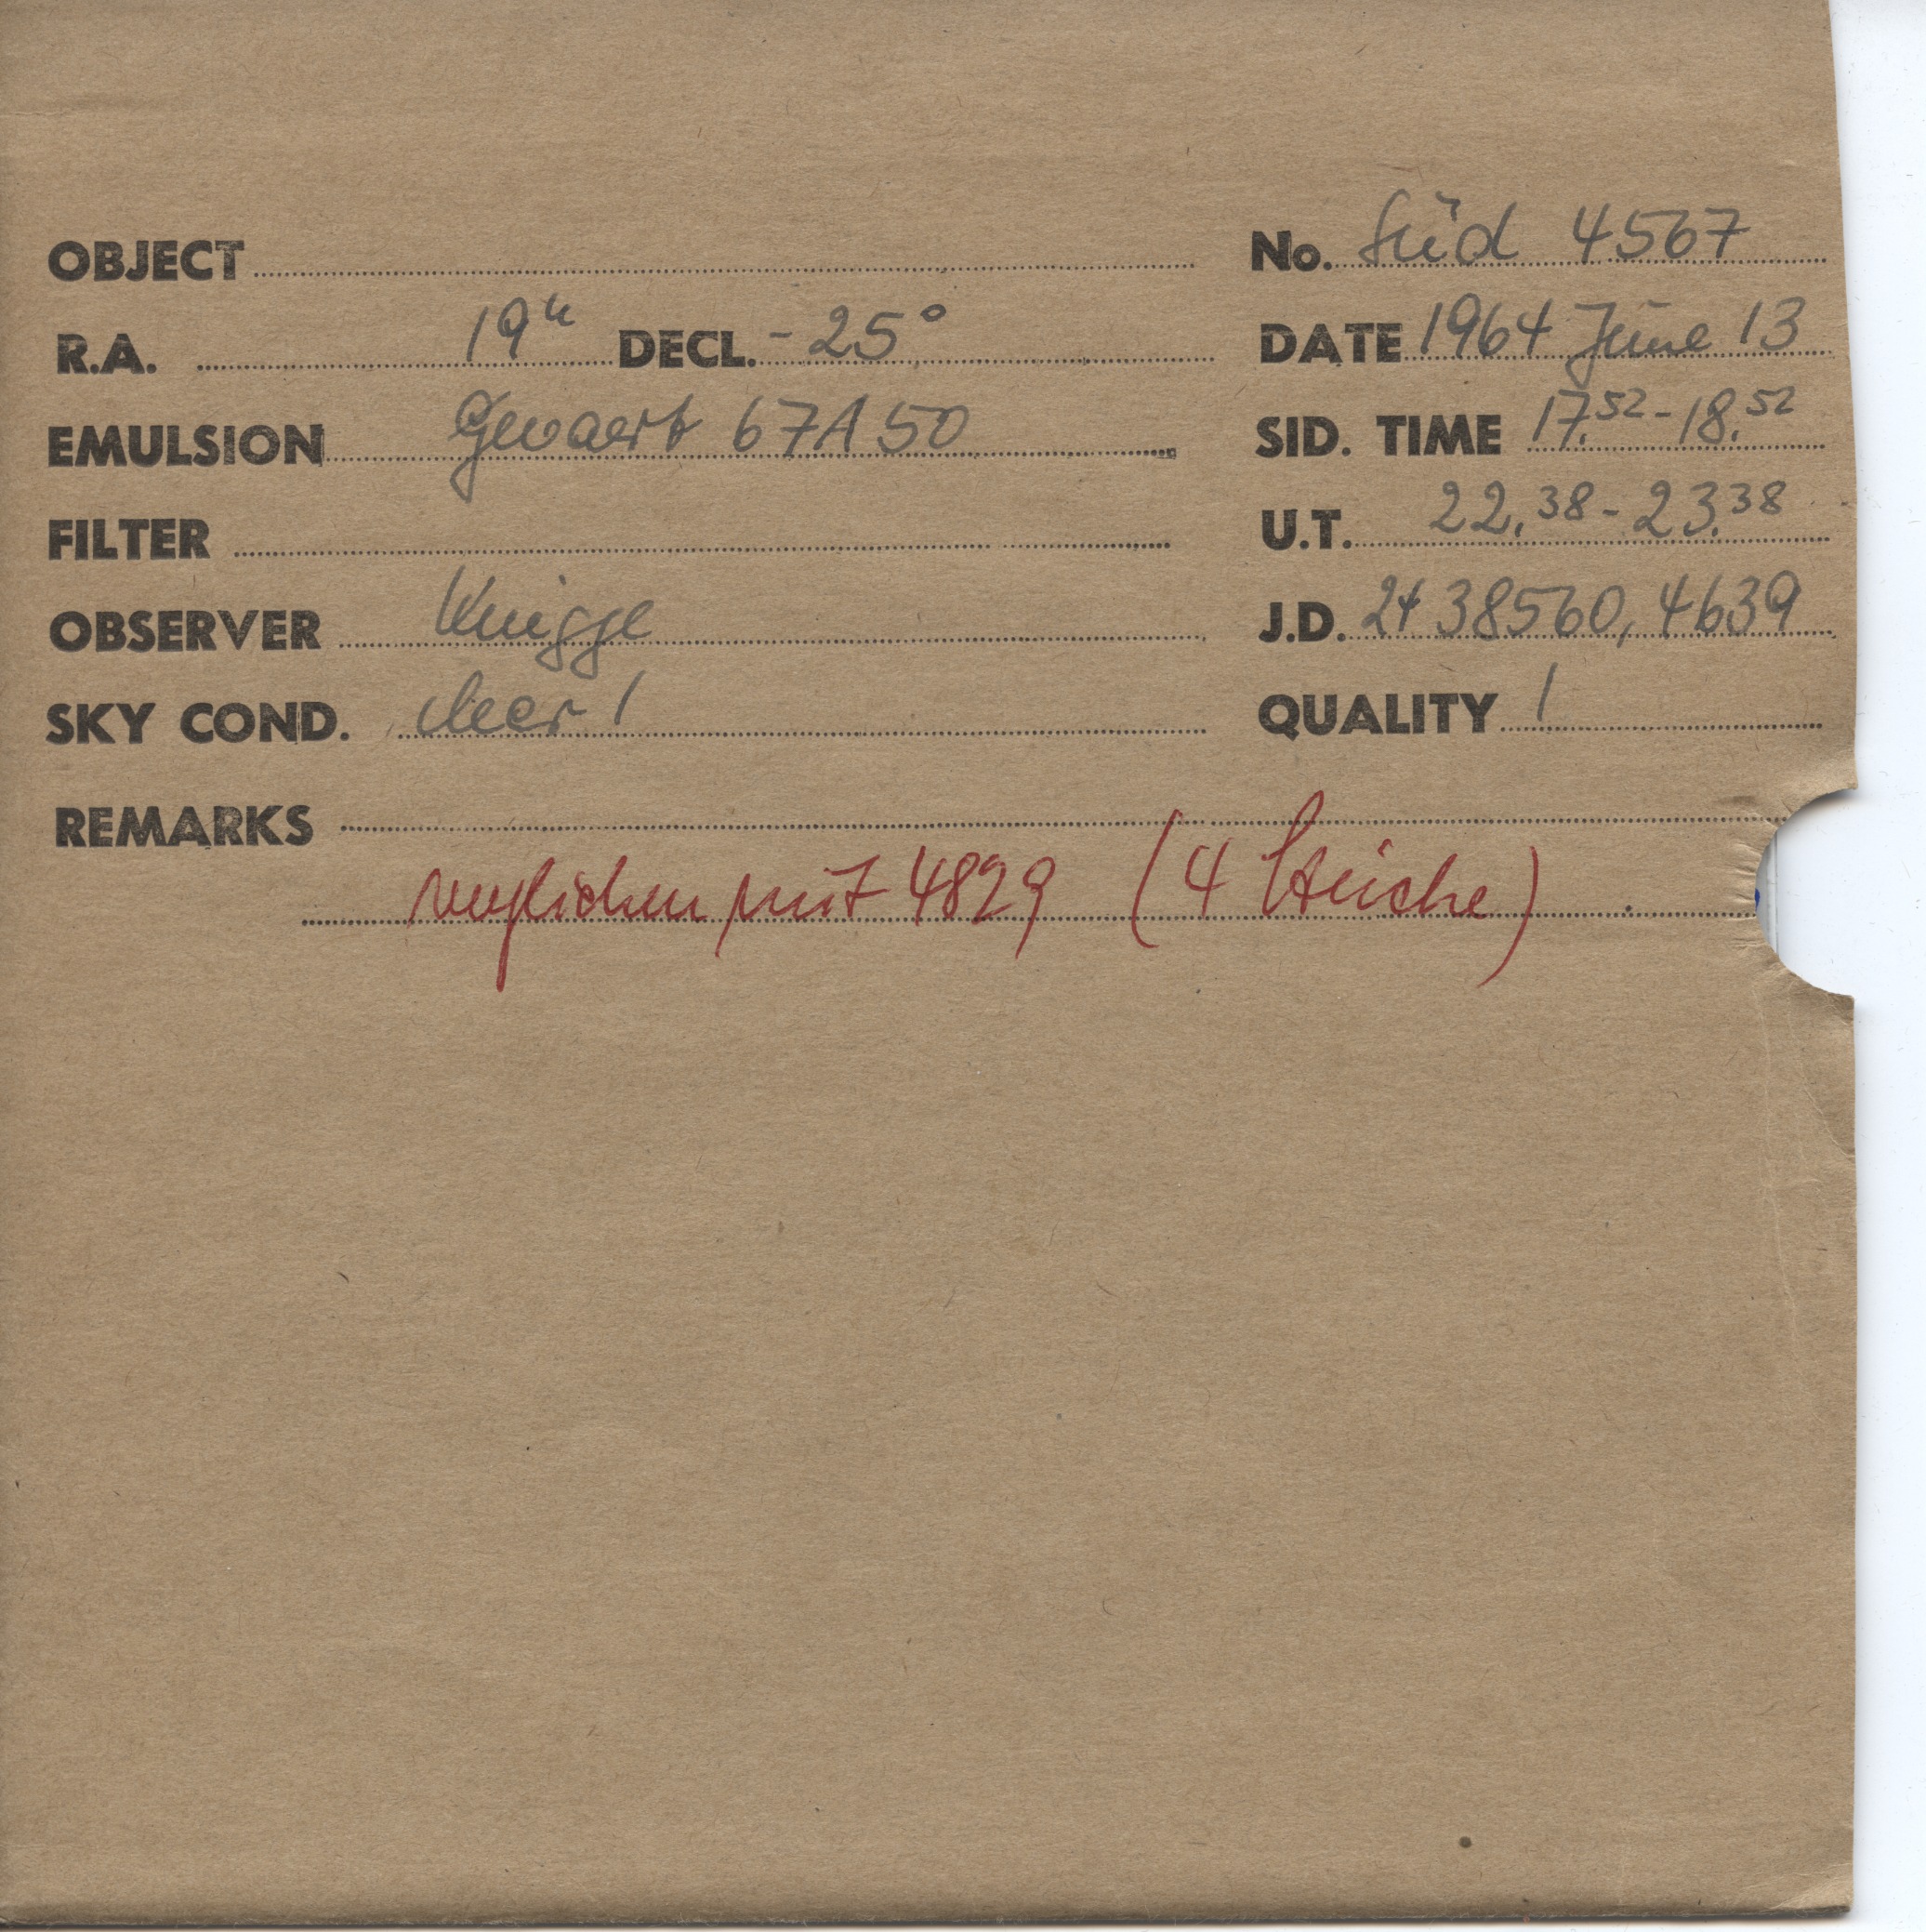 OBJECT No. Süd 4567
R.A. 19h DECL. -25°
DATE 1964 June 13
EMULSION Gevaert 67A50
SID. TIME 17.52-18.52
FILTER
U.T. 22.38-23.38
OBSERVER Knigge
J.D. 2438560,4639
SKY COND. clear 1
QUALITY 1
REMARKS
verglichen mit 4829 (4 Striche)